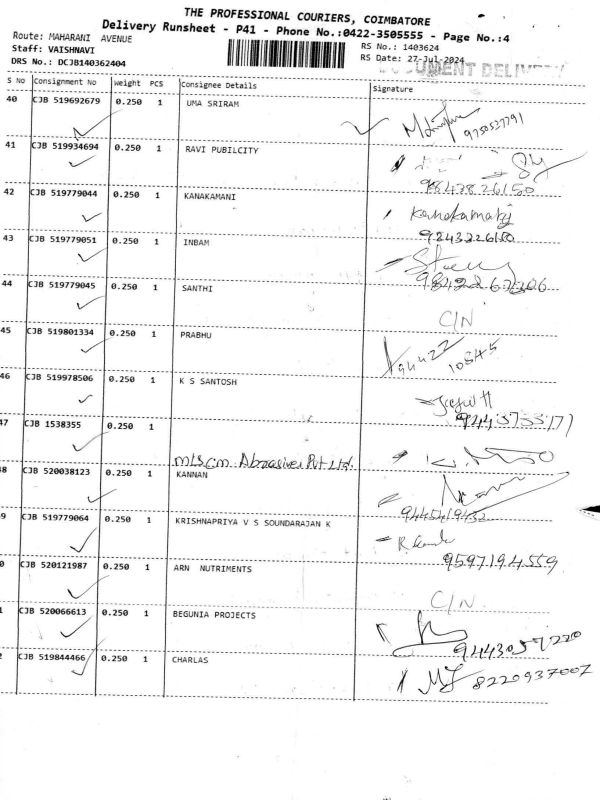 THE PROFESSIONAL COURIERS, COIMBATORE
Delivery Runsheet - P41 - Phone No.:0422-3505555 - Page No.:4
Route: MAHARANI AVENUE
RS No.: 1403624
Staff: VAISHNAVI
RS Date: 27-Jul-2024
DRS No.: DCJB140362404
DOCUMENT DELIVERY
S No Consignment No Weight PCS Consignee Details Signature
40 CJB 519692679 0.250 1 UMA SRIRAM
9750537791
41 CJB 519934694 0.250 1 RAVI PUBILCITY
9843826150
42 CJB 519779044 0.250 1 KANAKAMANI
Kanakamani
9843226150
43 CJB 519779051 0.250 1 INBAM
44 CJB 519779045 0.250 1 SANTHI
C/N
45 CJB 519801334 0.250 1 PRABHU
10545
46 CJB 519978506 0.250 1 K S SANTOSH
47 CJB 1538355 0.250 1
M/s. cm. Abrasives Pvt Ltd.
48 CJB 520038123 0.250 1 KANNAN
9445419432
9 CJB 519779064 0.250 1 KRISHNAPRIYA V S SOUNDARAJAN K
9597194559
0 CJB 520121987 0.250 1 ARN NUTRIMENTS
C/N
1 CJB 520066613 0.250 1 BEGUNIA PROJECTS
9443057220
2 CJB 519844466 0.250 1 CHARLAS
8220937007